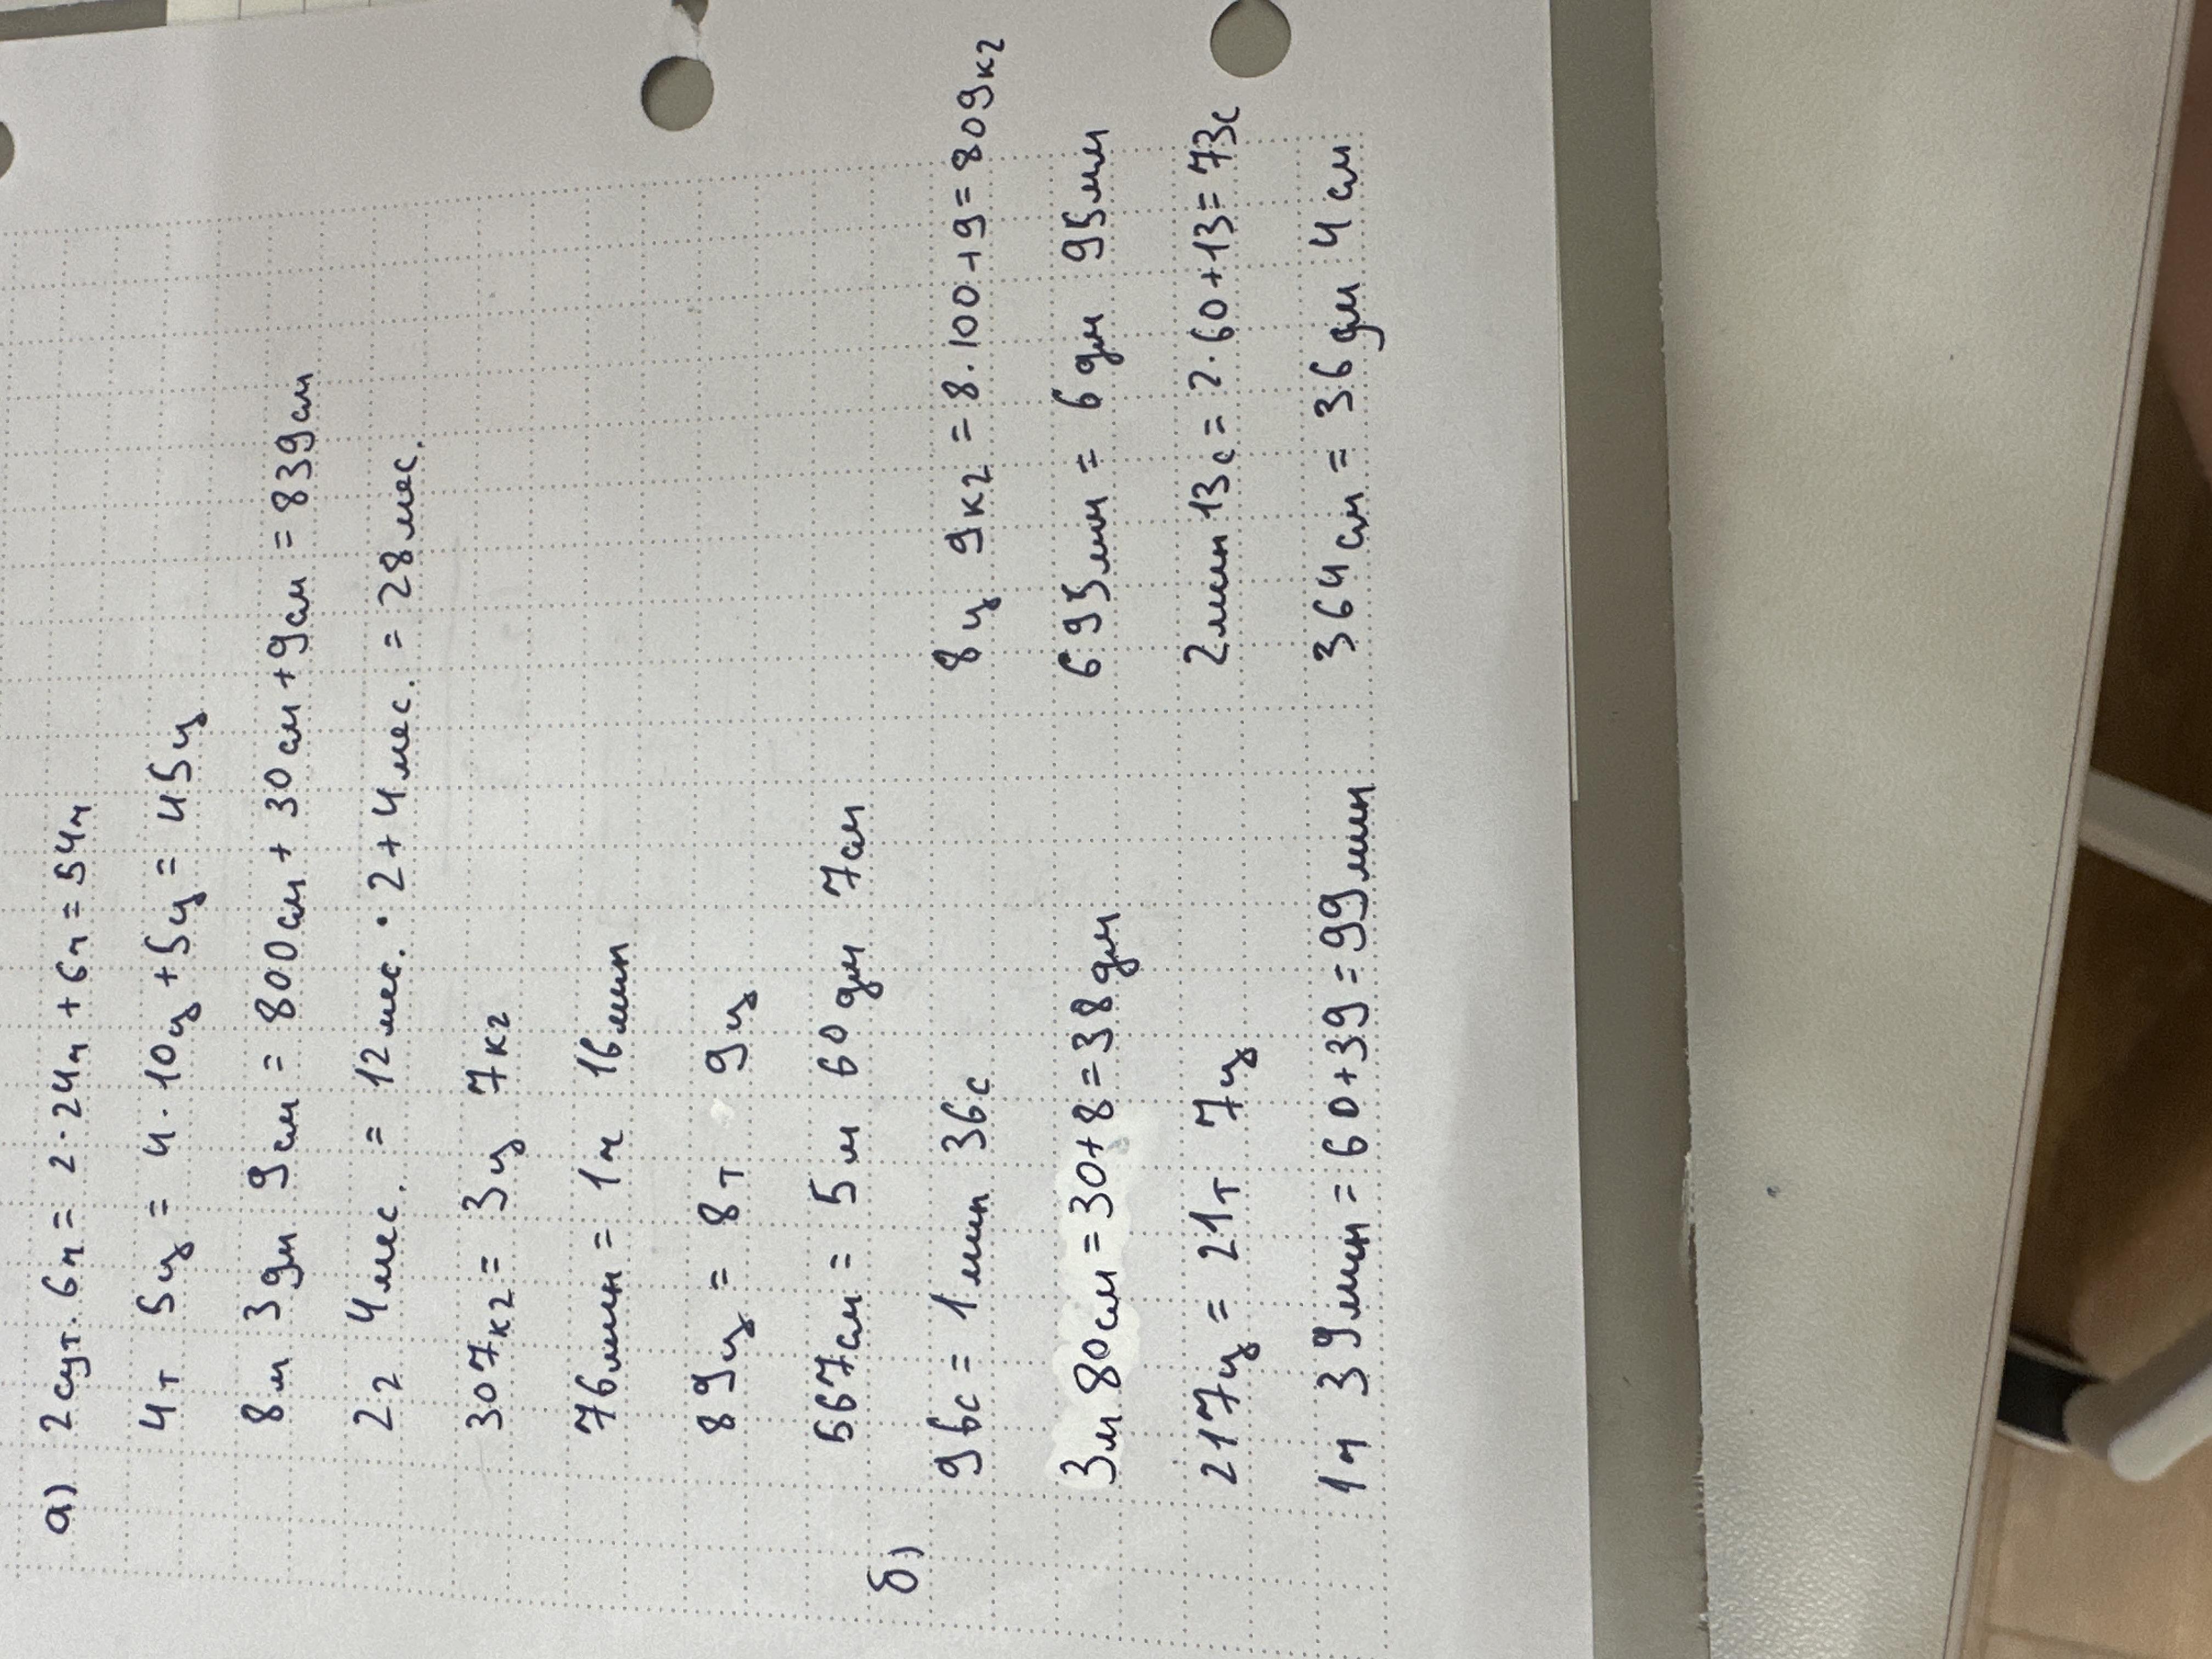 а) 2 сут. 6ч = 2·24ч + 6ч = 54ч
4т 5ц = 4·10ц + 5ц = 45ц
8м 3дм 9см = 800см + 30см + 9см = 839см
2г 4мес. = 12мес.·2 + 4мес. = 28мес.
307кг = 3ц 7кг
76мин = 1ч 16мин
89ц = 8т 9ц
567см = 5м 60дм 7см
б) 96с = 1мин 36с 8ц 9кг = 8·100+9 = 809кг
3м 80см = 30+8 = 38дм 695мм = 6дм 95мм
217ц = 21т 7ц 2мин 13с = 2·60+13 = 73с
1ч 39мин = 60+39 = 99мин 364см = 36дм 4см